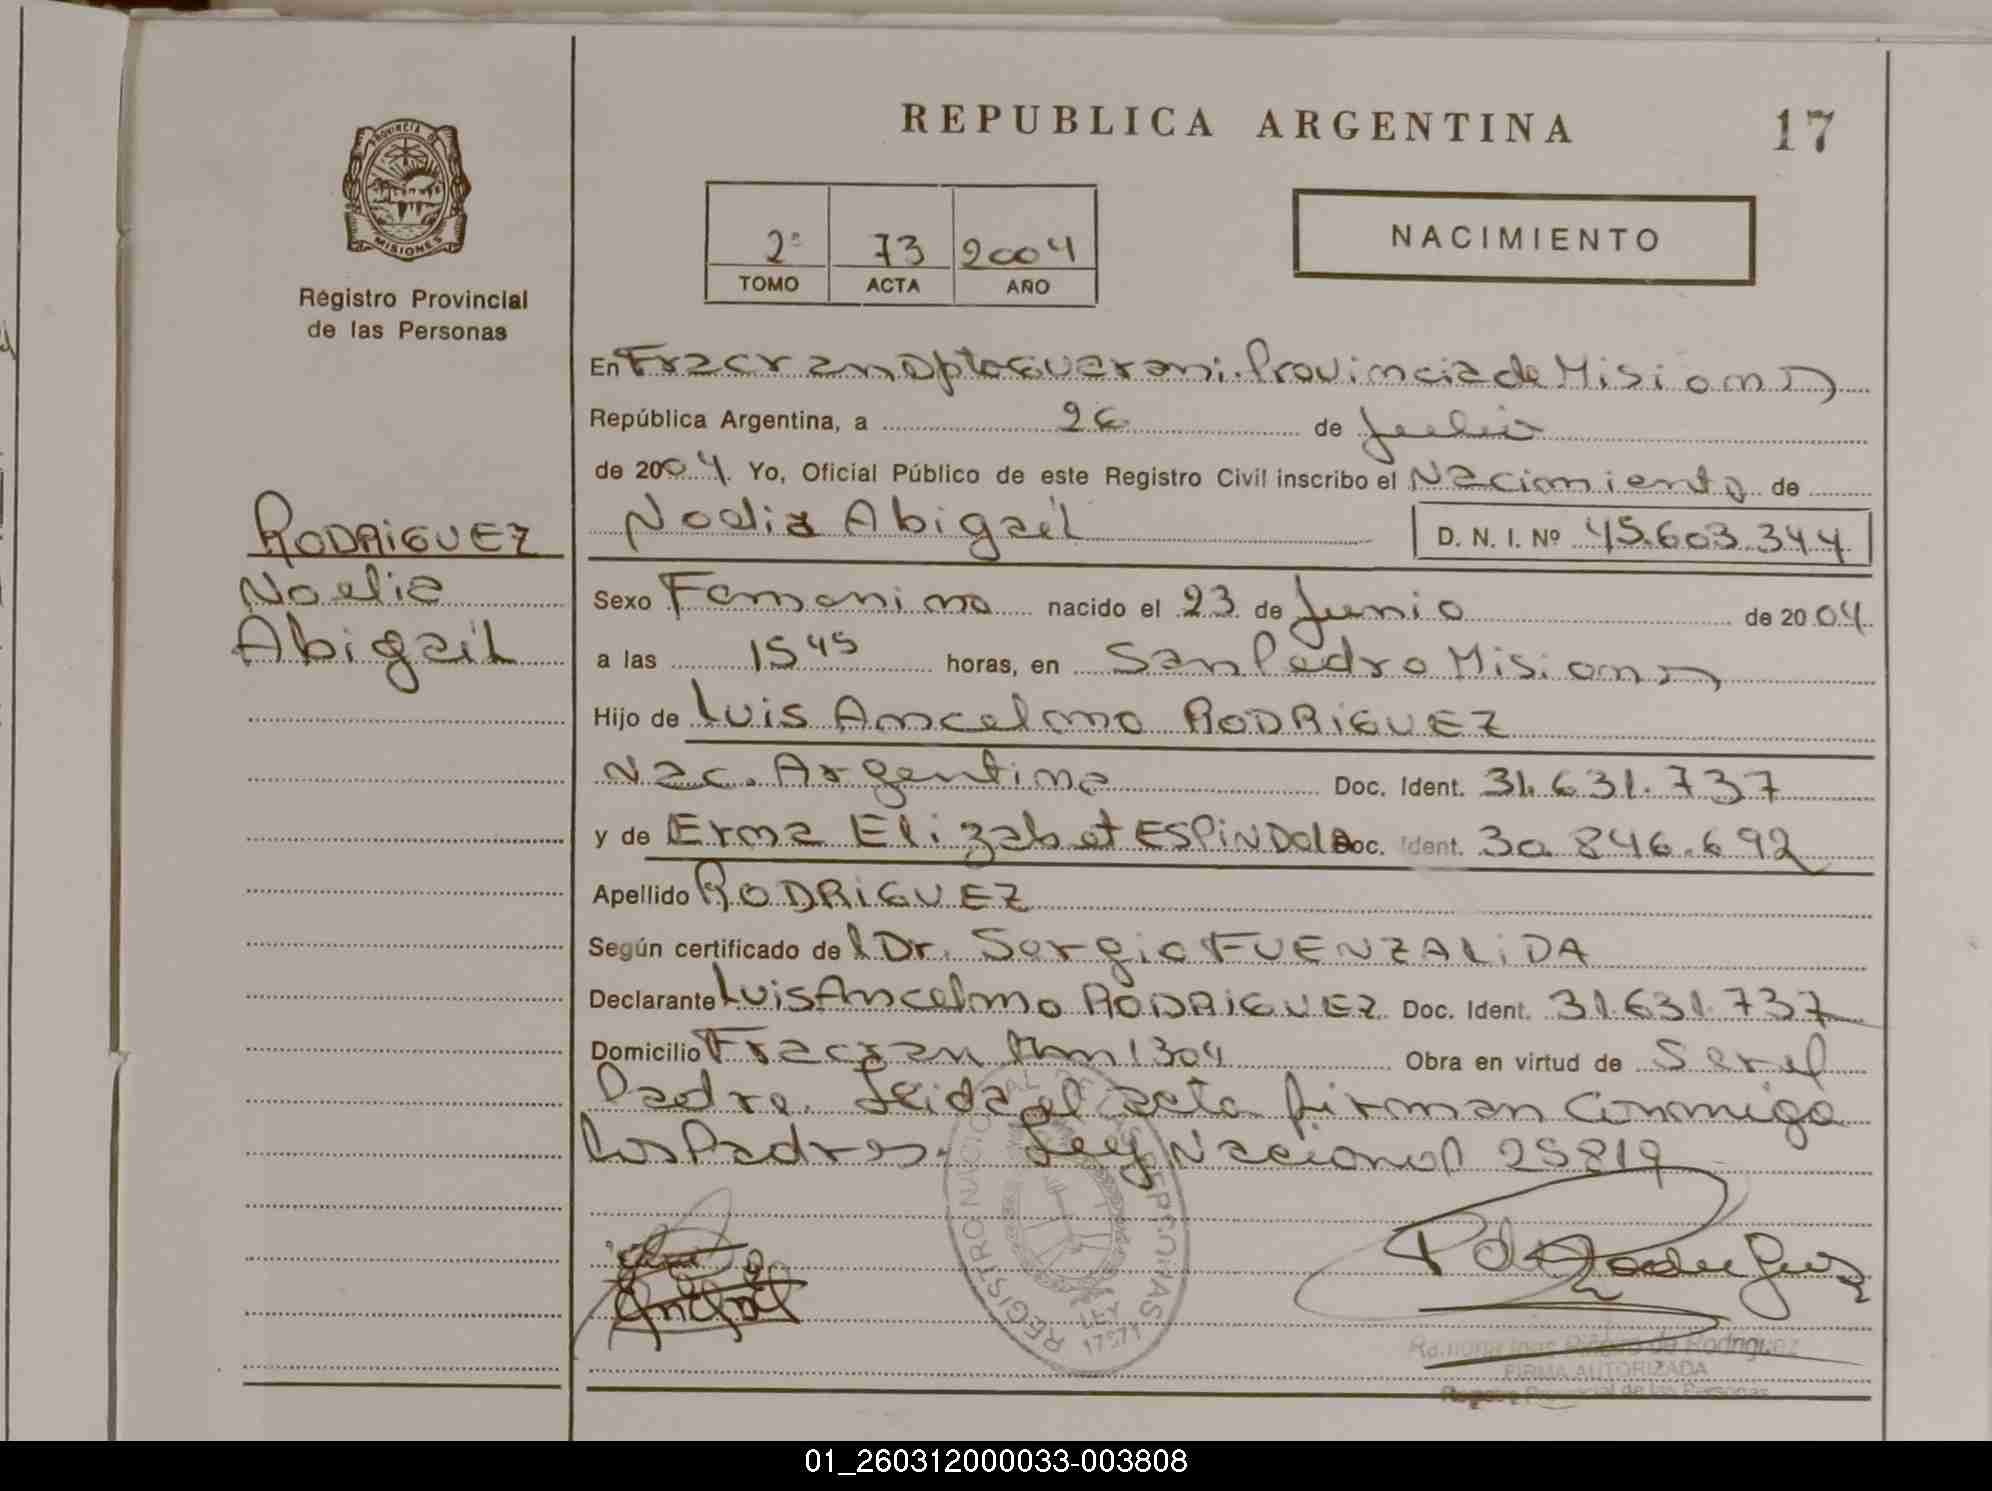 REPUBLICA ARGENTINA
17
PROVINCIA DE
MISIONES
Registro Provincial
de las Personas
2º 73 2004
TOMO ACTA AÑO
NACIMIENTO
RODRIGUEZ
Noelia
Abigail
En Fracran Dpto Guarani. Provincia de Misiones
República Argentina, a 26 de Julio
de 2004. Yo, Oficial Público de este Registro Civil inscribo el Nacimiento de
Noelia Abigail D. N. I. Nº 45.603.344
Sexo Femenino nacido el 23 de Junio de 2004
a las 15 45 horas, en San Pedro Misiones
Hijo de Luis Ancelmo RODRIGUEZ
Nac. Argentina Doc. Ident. 31.631.737
y de Erma Elizabet ESPINDOLA Doc. Ident. 30 846.692
Apellido RODRIGUEZ
Según certificado del Dr. Sergio FUENZALIDA
Declarante Luis Ancelmo RODRIGUEZ Doc. Ident. 31.631.737
Domicilio Fracran Km 1304 Obra en virtud de Ser el
Padre. Leida el acta firman conmigo
los Padres. Ley Nacional 25819
REGISTRO NACIONAL DE LAS PERSONAS
LEY
17671
P de Rodriguez
Ramona Ines de Rodriguez
FIRMA AUTORIZADA
Registro Provincial de las Personas
01_260312000033-003808